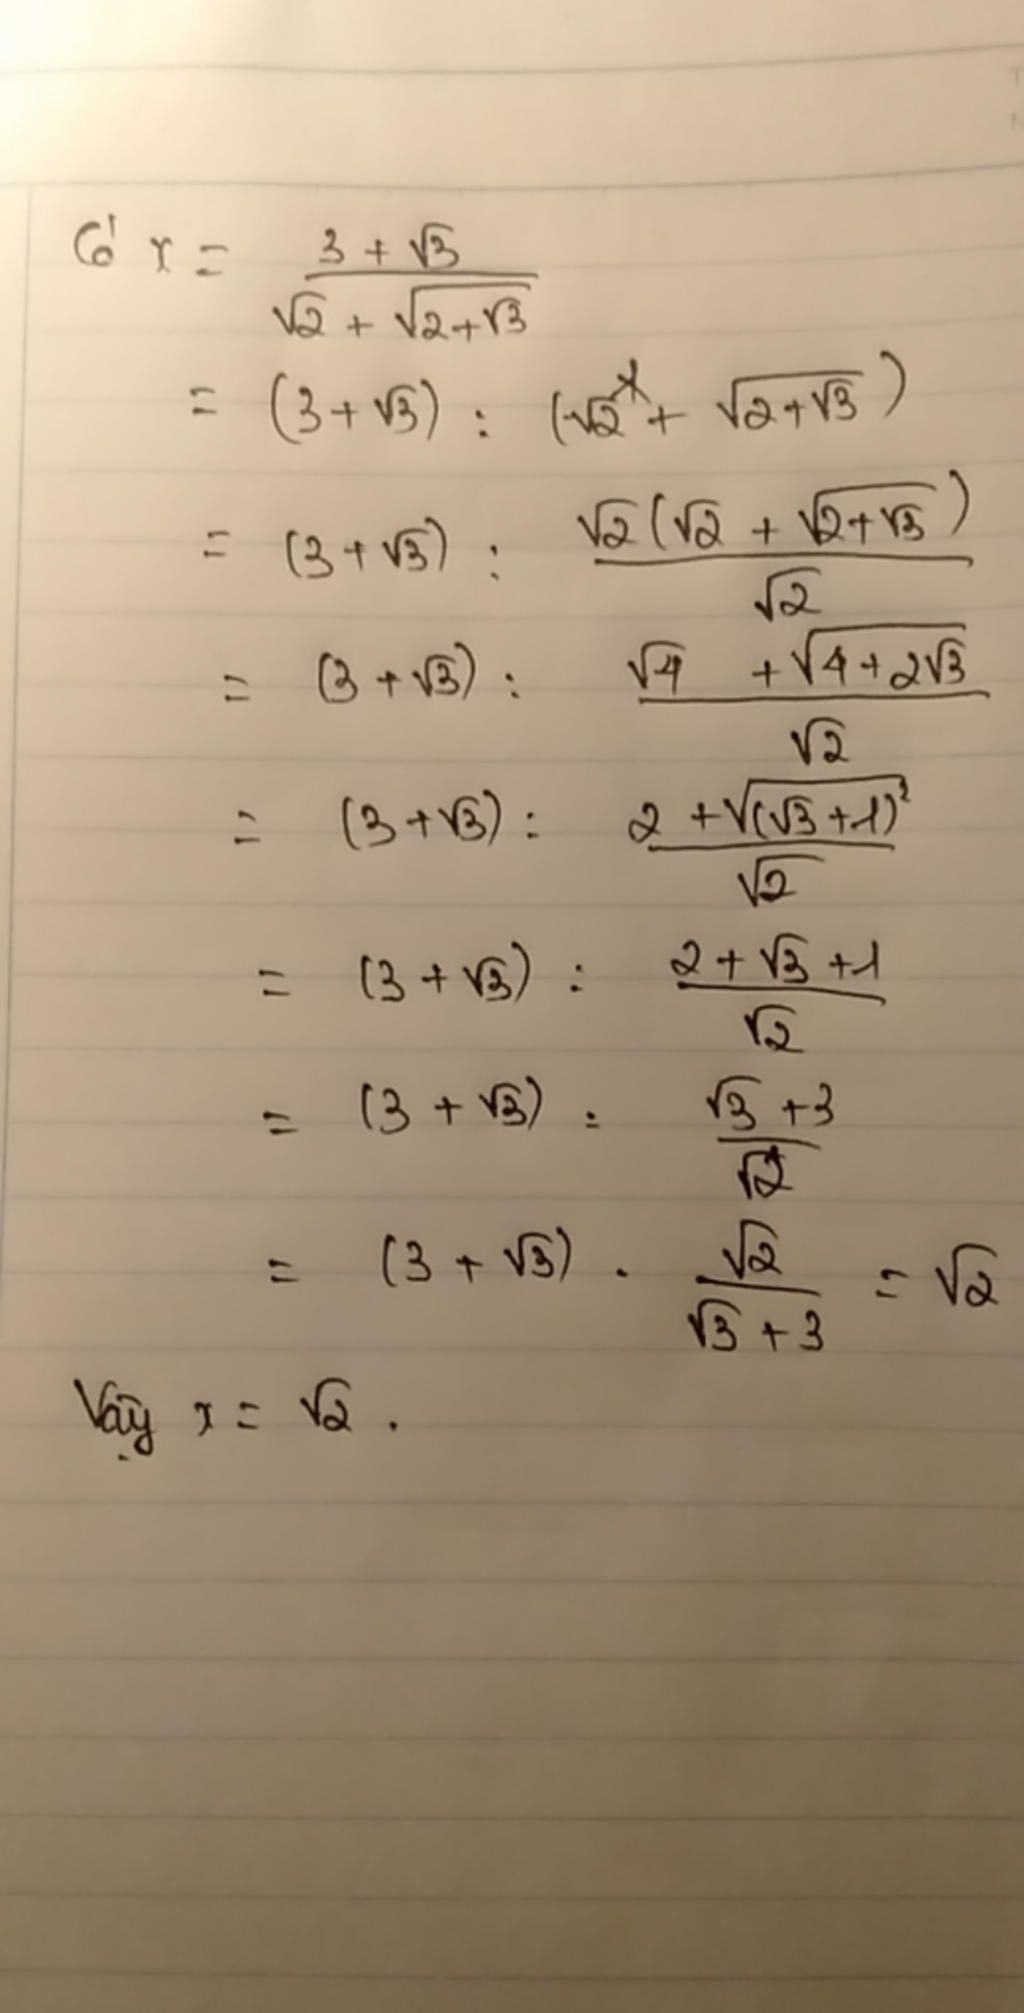 Có x = (3 + √3)/(√2 + √(2+√3))
= (3 + √3) : (√2 + √(2+√3))
= (3 + √3) : (√2(√2 + √(2+√3)))/√2
= (3 + √3) : (√4 + √(4 + 2√3))/√2
= (3 + √3) : (2 + √((√3 + 1)²))/√2
= (3 + √3) : (2 + √3 + 1)/√2
= (3 + √3) : (√3 + 3)/√2
= (3 + √3) . √2/(√3 + 3) = √2
Vậy x = √2 .